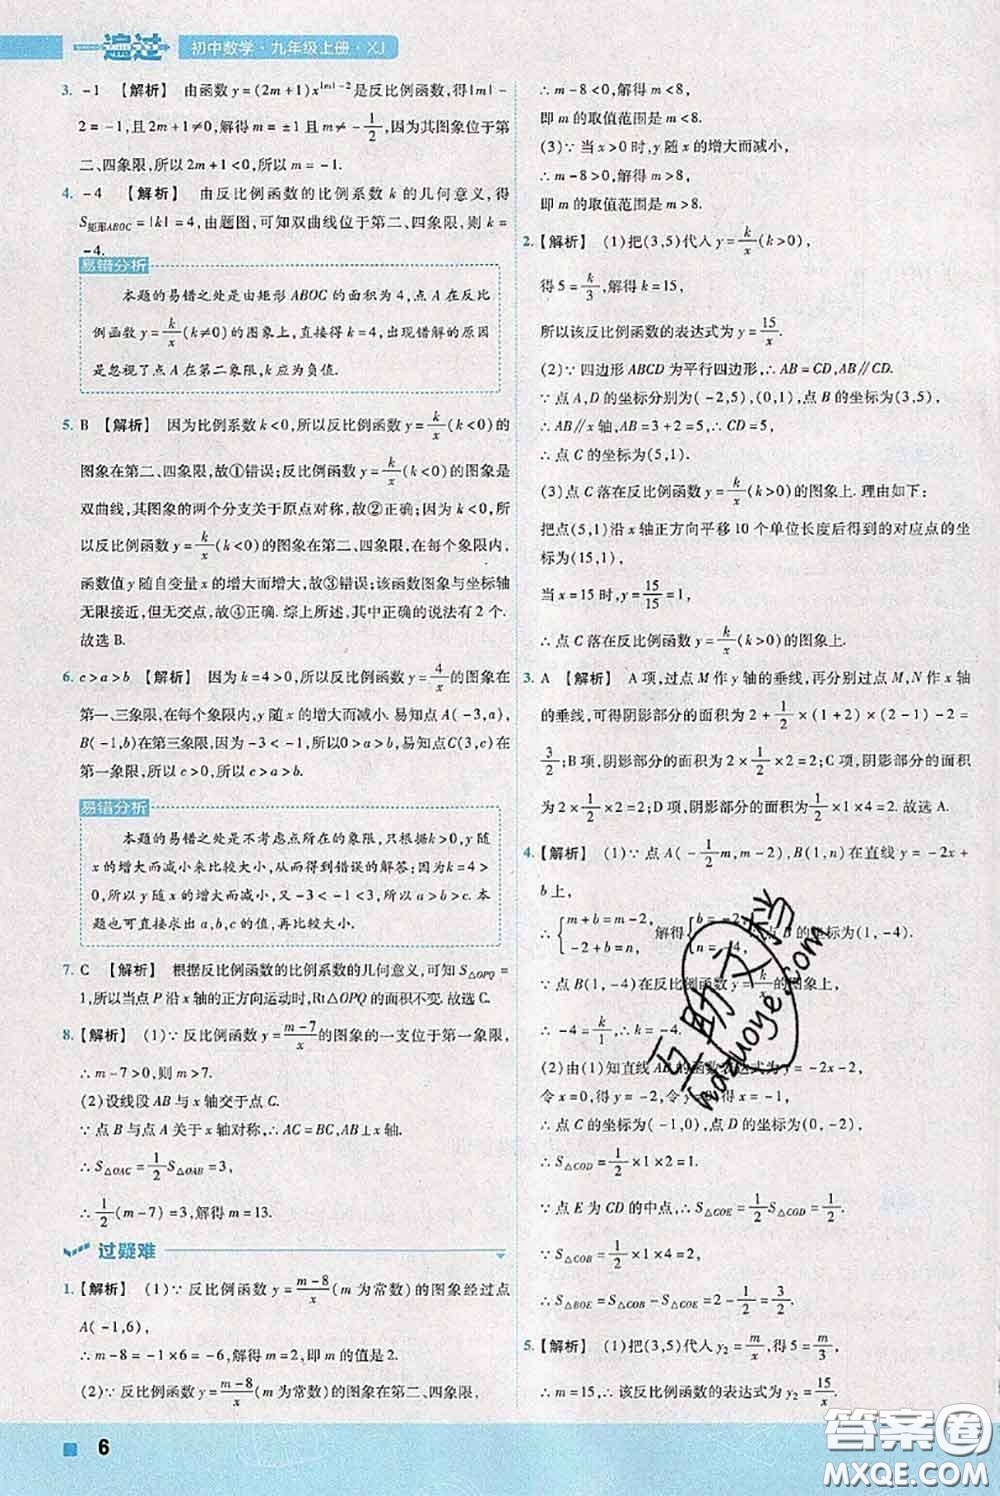 一遍过 初中数学·九年级上册·XJ
3. -1 【解析】 由函数 y=(2m+1)x^{|m|-2}是反比例函数,得|m|-
2=-1,且2m+1≠0,解得m=±1且m≠-1/2,因为其图象位于第
二、四象限,所以2m+1<0,所以m=-1.
4. -4 【解析】 由反比例函数的比例系数k的几何意义,得
S矩形ABOC=|k|=4,由题图,可知双曲线位于第二、四象限,则k=
-4.
易错分析
本题的易错之处是由矩形ABOC的面积为4,点A在反比
例函数y=k/x(k≠0)的图象上,直接得k=4,出现错解的原因
是忽视了点A在第二象限,k应为负值.
5. B 【解析】 因为比例系数k<0,所以反比例函数y=k/x(k<0)的
图象在第二、四象限,故①错误;反比例函数y=k/x(k<0)的图象是
双曲线,其图象的两个分支关于原点对称,故②正确;因为k<0,所
以反比例函数y=k/x(k<0)的图象在第二、四象限,在每个象限内,
函数值y随自变量x的增大而增大,故③错误;该函数图象与坐标轴
无限接近,但无交点,故④正确.综上所述,其中正确的说法有2个.
故选B.
6. c>a>b 【解析】 因为k=4>0,所以反比例函数y=4/x的图象在
第一、三象限,在每个象限内,y随x的增大而减小.易知点A(-3,a),
B(-1,b)在第三象限,因为-3<-1,所以0>a>b;易知点C(3,c)在
第一象限,所以c>0,所以c>a>b.
易错分析
本题的易错之处是不考虑点所在的象限,只根据k>0,y随
x的增大而减小来比较大小,从而得到错误的解答;因为k=4>
0,所以y随x的增大而减小,又-3<-1<3,所以a>b>c.本
题也可直接求出a,b,c的值,再比较大小.
7. C 【解析】 根据反比例函数的比例系数的几何意义,可知S△OPQ=
1,所以当点P沿x轴的正方向运动时,Rt△OPQ的面积不变.故选C.
8. 【解析】 (1)∵反比例函数y=(m-7)/x的图象的一支位于第一象限,
∴m-7>0,即m>7.
(2)设线段AB与x轴交于点C.
∵点B与点A关于x轴对称,∴AC=BC,AB⊥x轴.
∴S△OAC=1/2S△OAB=3,
∴1/2(m-7)=3,解得m=13.
过疑难
1. 【解析】 (1)∵反比例函数y=(m-8)/x(m为常数)的图象经过点
A(-1,6),
∴m-8=-1×6=-6,解得m=2,即m的值是2.
(2)∵反比例函数y=(m-8)/x(m为常数)的图象在第二、四象限,
∴m-8<0,解得m<8,
即m的取值范围是m<8.
(3)∵当x>0时,y随x的增大而减小,
∴m-8>0,解得m>8,
即m的取值范围是m>8.
2. 【解析】 (1)把(3,5)代入y=k/x(k>0),
得5=k/3,解得k=15,
所以该反比例函数的表达式为y=15/x.
(2)∵四边形ABCD为平行四边形,∴AB=CD,AB∥CD.
∵点A,D的坐标分别为(-2,5),(0,1),点B的坐标为(3,5),
∴AB∥x轴,AB=3+2=5,∴CD=5,
∴点C的坐标为(5,1).
(3)点C落在反比例函数y=k/x(k>0)的图象上.理由如下:
把点(5,1)沿x轴正方向平移10个单位长度后得到的对应点的坐
标为(15,1),
当x=15时,y=15/15=1,
∴点C落在反比例函数y=k/x(k>0)的图象上.
3. A 【解析】 A项,过点M作y轴的垂线,再分别过点M,N作x轴
的垂线,可得阴影部分的面积为2+1/2×(1+2)×(2-1)-2=
3/2;B项,阴影部分的面积为2×1/2×2=2;C项,阴影部分的面积
为2×1/2×2=2;D项,阴影部分的面积为4×1/2×1=2.故选A.
4. 【解析】 (1)∵点A(-1/2m,m-2),B(1,n)在直线y=-2x+
b上,
∴{m+b=m-2, -2+b=n, 解得{b=-2, n=-4, 点B的坐标为(1,-4).
∵点B(1,-4)在反比例函数y=k/x的图象上,
∴-4=k/1,∴k=-4.
(2)由(1)知直线AB的函数表达式为y=-2x-2,
令x=0,解得y=-2,令y=0,解得x=-1,
∴点C的坐标为(-1,0),点D的坐标为(0,-2),
∴S△COD=1/2×1×2=1.
∵点E为CD的中点,∴S△COE=1/2S△COD=1/2.
∵S△COB=1/2×1×4=2,
∴S△BOE=S△COB-S△COE=2-1/2=3/2.
5. 【解析】 (1)把(3,5)代入y₂=m/x,得5=m/3,
∴m=15,∴该反比例函数的表达式为y₂=15/x.
百助文档
baizhuoye.com
6
答案圈
MXQE.COM